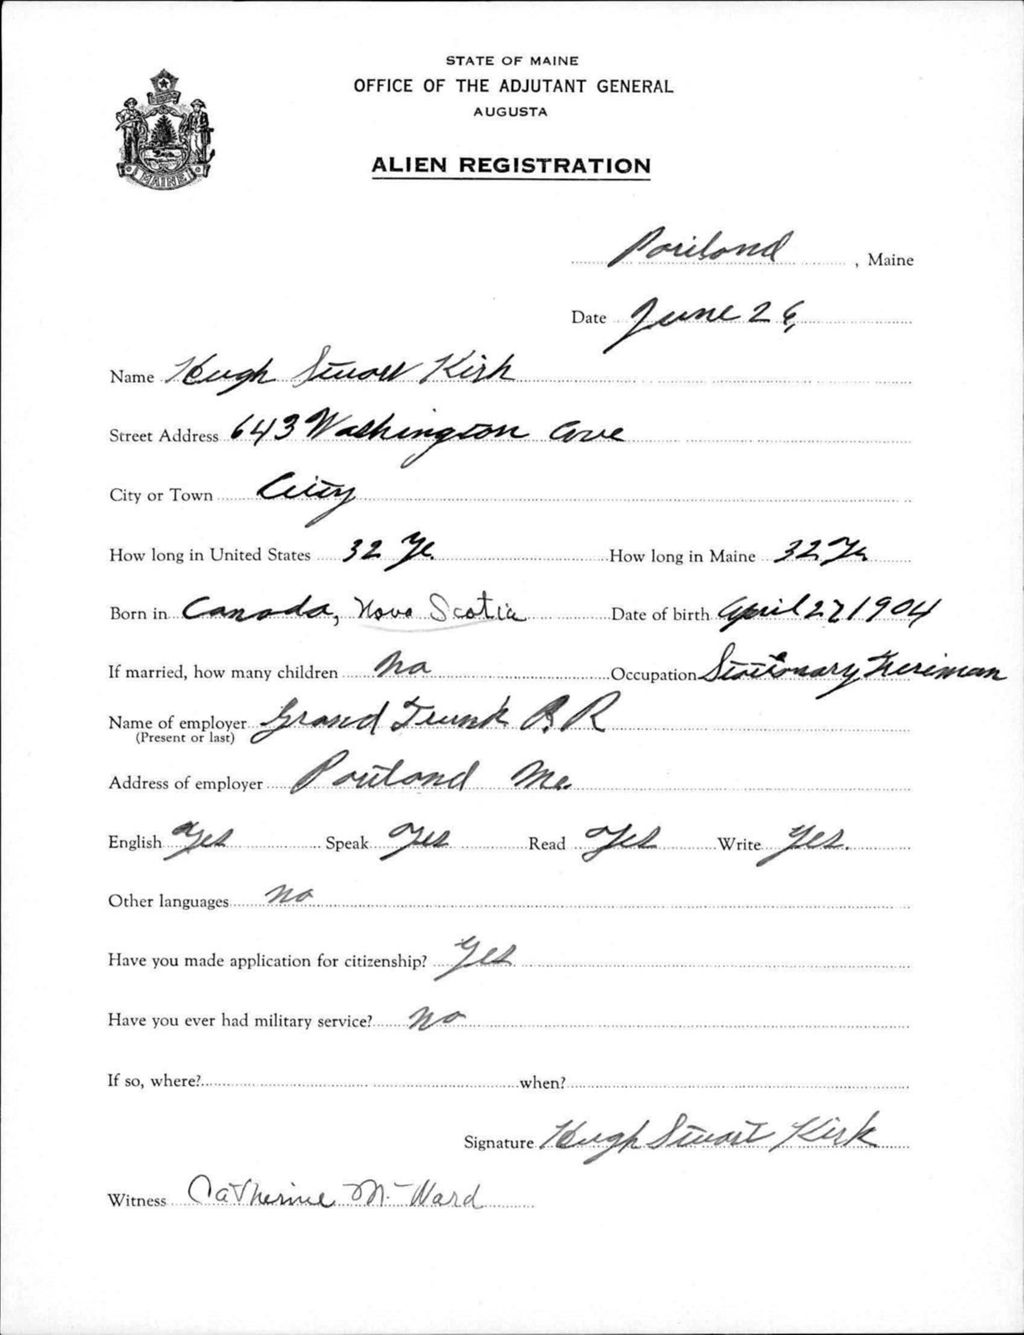 STATE OF MAINE
OFFICE OF THE ADJUTANT GENERAL
AUGUSTA
ALIEN REGISTRATION
MAINE
Portland, Maine
Date June 26,
Name Hugh Stuart Kirk
Street Address 643 Washington Ave
City or Town City
How long in United States 32 Yr. How long in Maine 32 Yr
Born in Canada, Nova Scotia Date of birth April 27 1904
If married, how many children No Occupation Stationary Fireman
Name of employer Grand Trunk R R
(Present or last)
Address of employer Portland Me.
English Yes Speak Yes Read Yes Write Yes.
Other languages no
Have you made application for citizenship? Yes
Have you ever had military service? No
If so, where? when?
Signature Hugh Stuart Kirk
Witness Catherine M. Ward